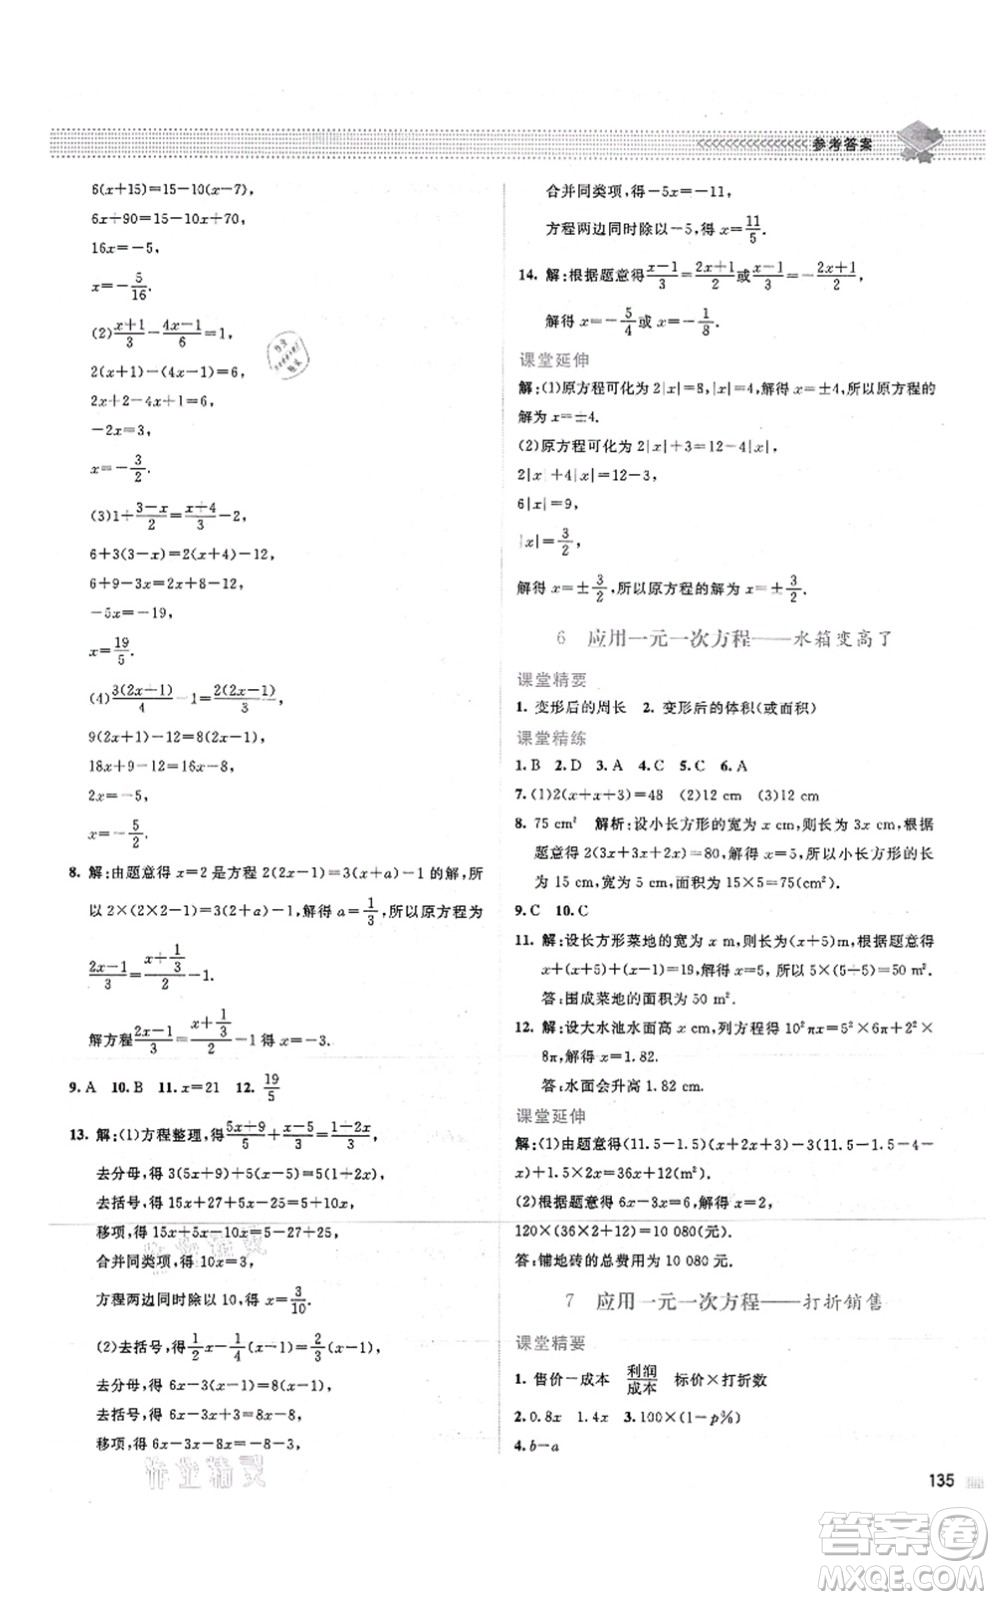 参考答案
6(x+15)=15-10(x-7),
6x+90=15-10x+70,
16x=-5,
x=-5/16.
(2)(x+1)/3-(4x-1)/6=1,
2(x+1)-(4x-1)=6,
2x+2-4x+1=6,
-2x=3,
x=-3/2.
(3)1+(3-x)/2=(x+4)/3-2,
6+3(3-x)=2(x+4)-12,
6+9-3x=2x+8-12,
-5x=-19,
x=19/5.
(4)3(2x-1)/4-1=2(2x-1)/3,
9(2x-1)-12=8(2x-1),
18x-9-12=16x-8,
2x=
x=
8. 解:由题意得 x=2 是方程 2(2x-1)=3(x+a)-1 的解,所
以 2×(2×2-1)=3(2+a)-1,解得 a=1/3,所以原方程为
(2x-1)/3=(x+1/3)/2-1.
解方程(2x-1)/3=(x+1/3)/2-1 得 x=-3.
9. A 10. B 11. x=21 12. 19/5
13. 解:(1)方程整理,得(5x+9)/5+(x-5)/3=(1+2x)/3,
去分母,得 3(5x+9)+5(x-5)=5(1+2x),
去括号,得 15x+27+5x-25=5+10x,
移项,得 15x+5x-10x=5-27+25,
合并同类项,得 10x=3,
方程两边同时除以 10,得 x=3/10.
(2)去括号,得 1/2x-1/4(x-1)=2/3(x-1),
去分母,得 6x-3(x-1)=8(x-1),
去括号,得 6x-3x+3=8x-8,
移项,得 6x-3x-8x=-8-3,
合并同类项,得-5x=-11,
方程两边同时除以-5,得 x=11/5.
14. 解:根据题意得(x-1)/3=(2x+1)/2或(x-1)/3=-(2x+1)/2,
解得 x=-5/4或 x=-1/8.
课堂延伸
解:(1)原方程可化为 2|x|=8,|x|=4,解得 x=±4,所以原方程的
解为 x=±4.
(2)原方程可化为 2|x|+3=12-4|x|,
2|x|+4|x|=12-3,
6|x|=9,
|x|=3/2,
解得 x=±3/2,所以原方程的解为 x=±3/2.
6 应用一元一次方程——水箱变高了
课堂精要
1. 变形后的周长 2. 变形后的体积(或面积)
课堂精练
1. B 2. D 3. A 4. C 5. C 6. A
7. (1)2(x+x+3)=48 (2)12 cm (3)12 cm
8. 75 cm² 解析:设小长方形的宽为 x cm,则长为 3x cm,根据
题意得 2(3x+3x+4x)=80,解得 x=5,所以小长方形的长
为 15 cm,宽为 5 cm,面积为 15×5=75(cm²).
9. C 10. C
11. 解:设长方形菜地的宽为 x m,则长为(x+5)m,根据题意得
x+(x+5+1)=19,解得 x= 所以 5×(5+5)=50(m²).
答:围成菜地的面积为 50 m².
12. 解:设大水池水面高 x cm,列方程得 10²πx=5²×6π+2²×
8π,解得 x=1.82.
答:水面会升高 1.82 cm.
课堂延伸
解:(1)由题意得(11.5-1.5)(x+2x+3)-(11.5-8-
x)+1.5×2x=36x+12(m²).
(2)根据题意得 6x-3x=6,解得 x=2,
120×(36×2+12)=10 080(元).
答:铺地砖的总费用为 10 080 元.
7 应用一元一次方程——打折销售
课堂精要
1. 售价-成本 利润/成本 标价×打折数
2. 0.8x 1.4x 3. 100×(1-p%)
4. b-a
135
作业精灵
答案卷
MXQE.COM